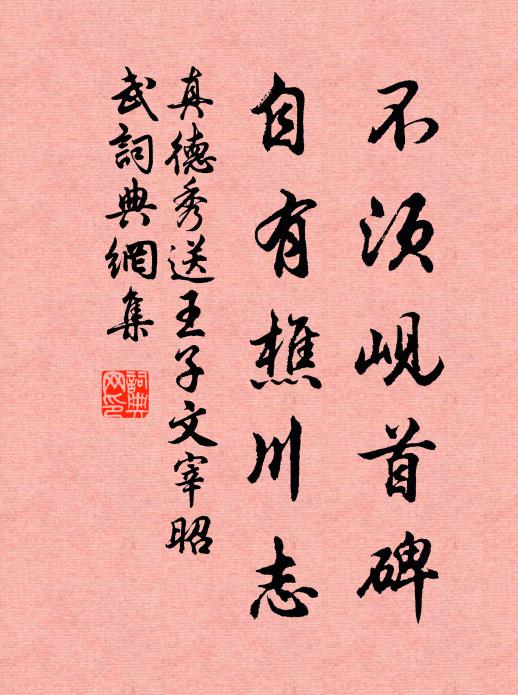 不須峴首碑
自有樵川志
真德秀送王子文宰昭
武詞典網集
詞典网印